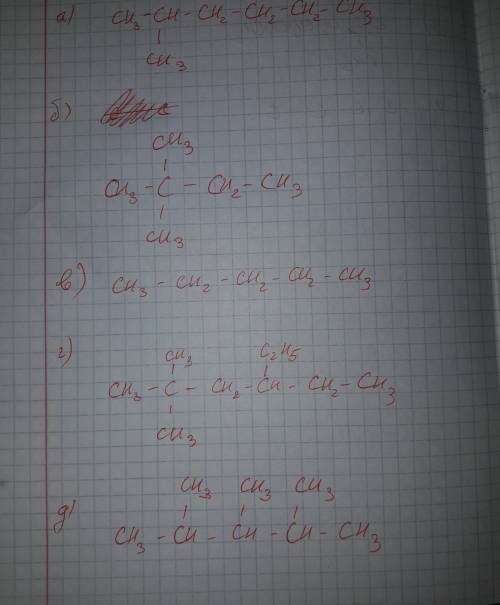 а) CH3-CH-CH2-CH2-CH2-CH3
CH3
б)
CH3
CH3-C-CH2-CH3
CH3
в) CH3-CH2-CH2-CH2-CH3
г)
CH3 C2H5
CH3-C-CH2-CH-CH2-CH3
CH3
CH3 CH3 CH3
д)
CH3-CH-CH-CH-CH3